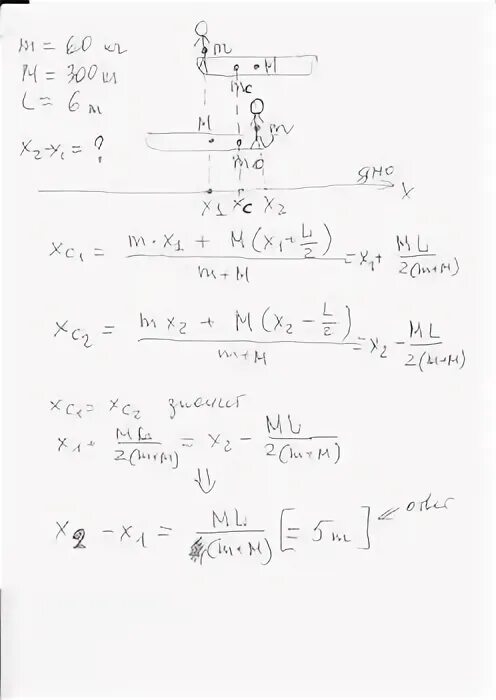 m = 60 кг
M = 300 кг
L = 6 m
x₂ - x₁ = ?
m
M
mc
M
m
дно
x1 xc x2
x
xc₁ = (m · x₁ + M(x₁ + L/2)) / (m + M) = x₁ + ML / 2(m+M)
xc₂ = (m x₂ + M(x₂ - L/2)) / (m + M) = x₂ - ML / 2(m+M)
xc₁ = xc₂ значит
x₁ + ML / 2(m+M) = x₂ - ML / 2(m+M)
⇓
x₂ - x₁ = ML / (m+M) [= 5m] ⇐ ответ